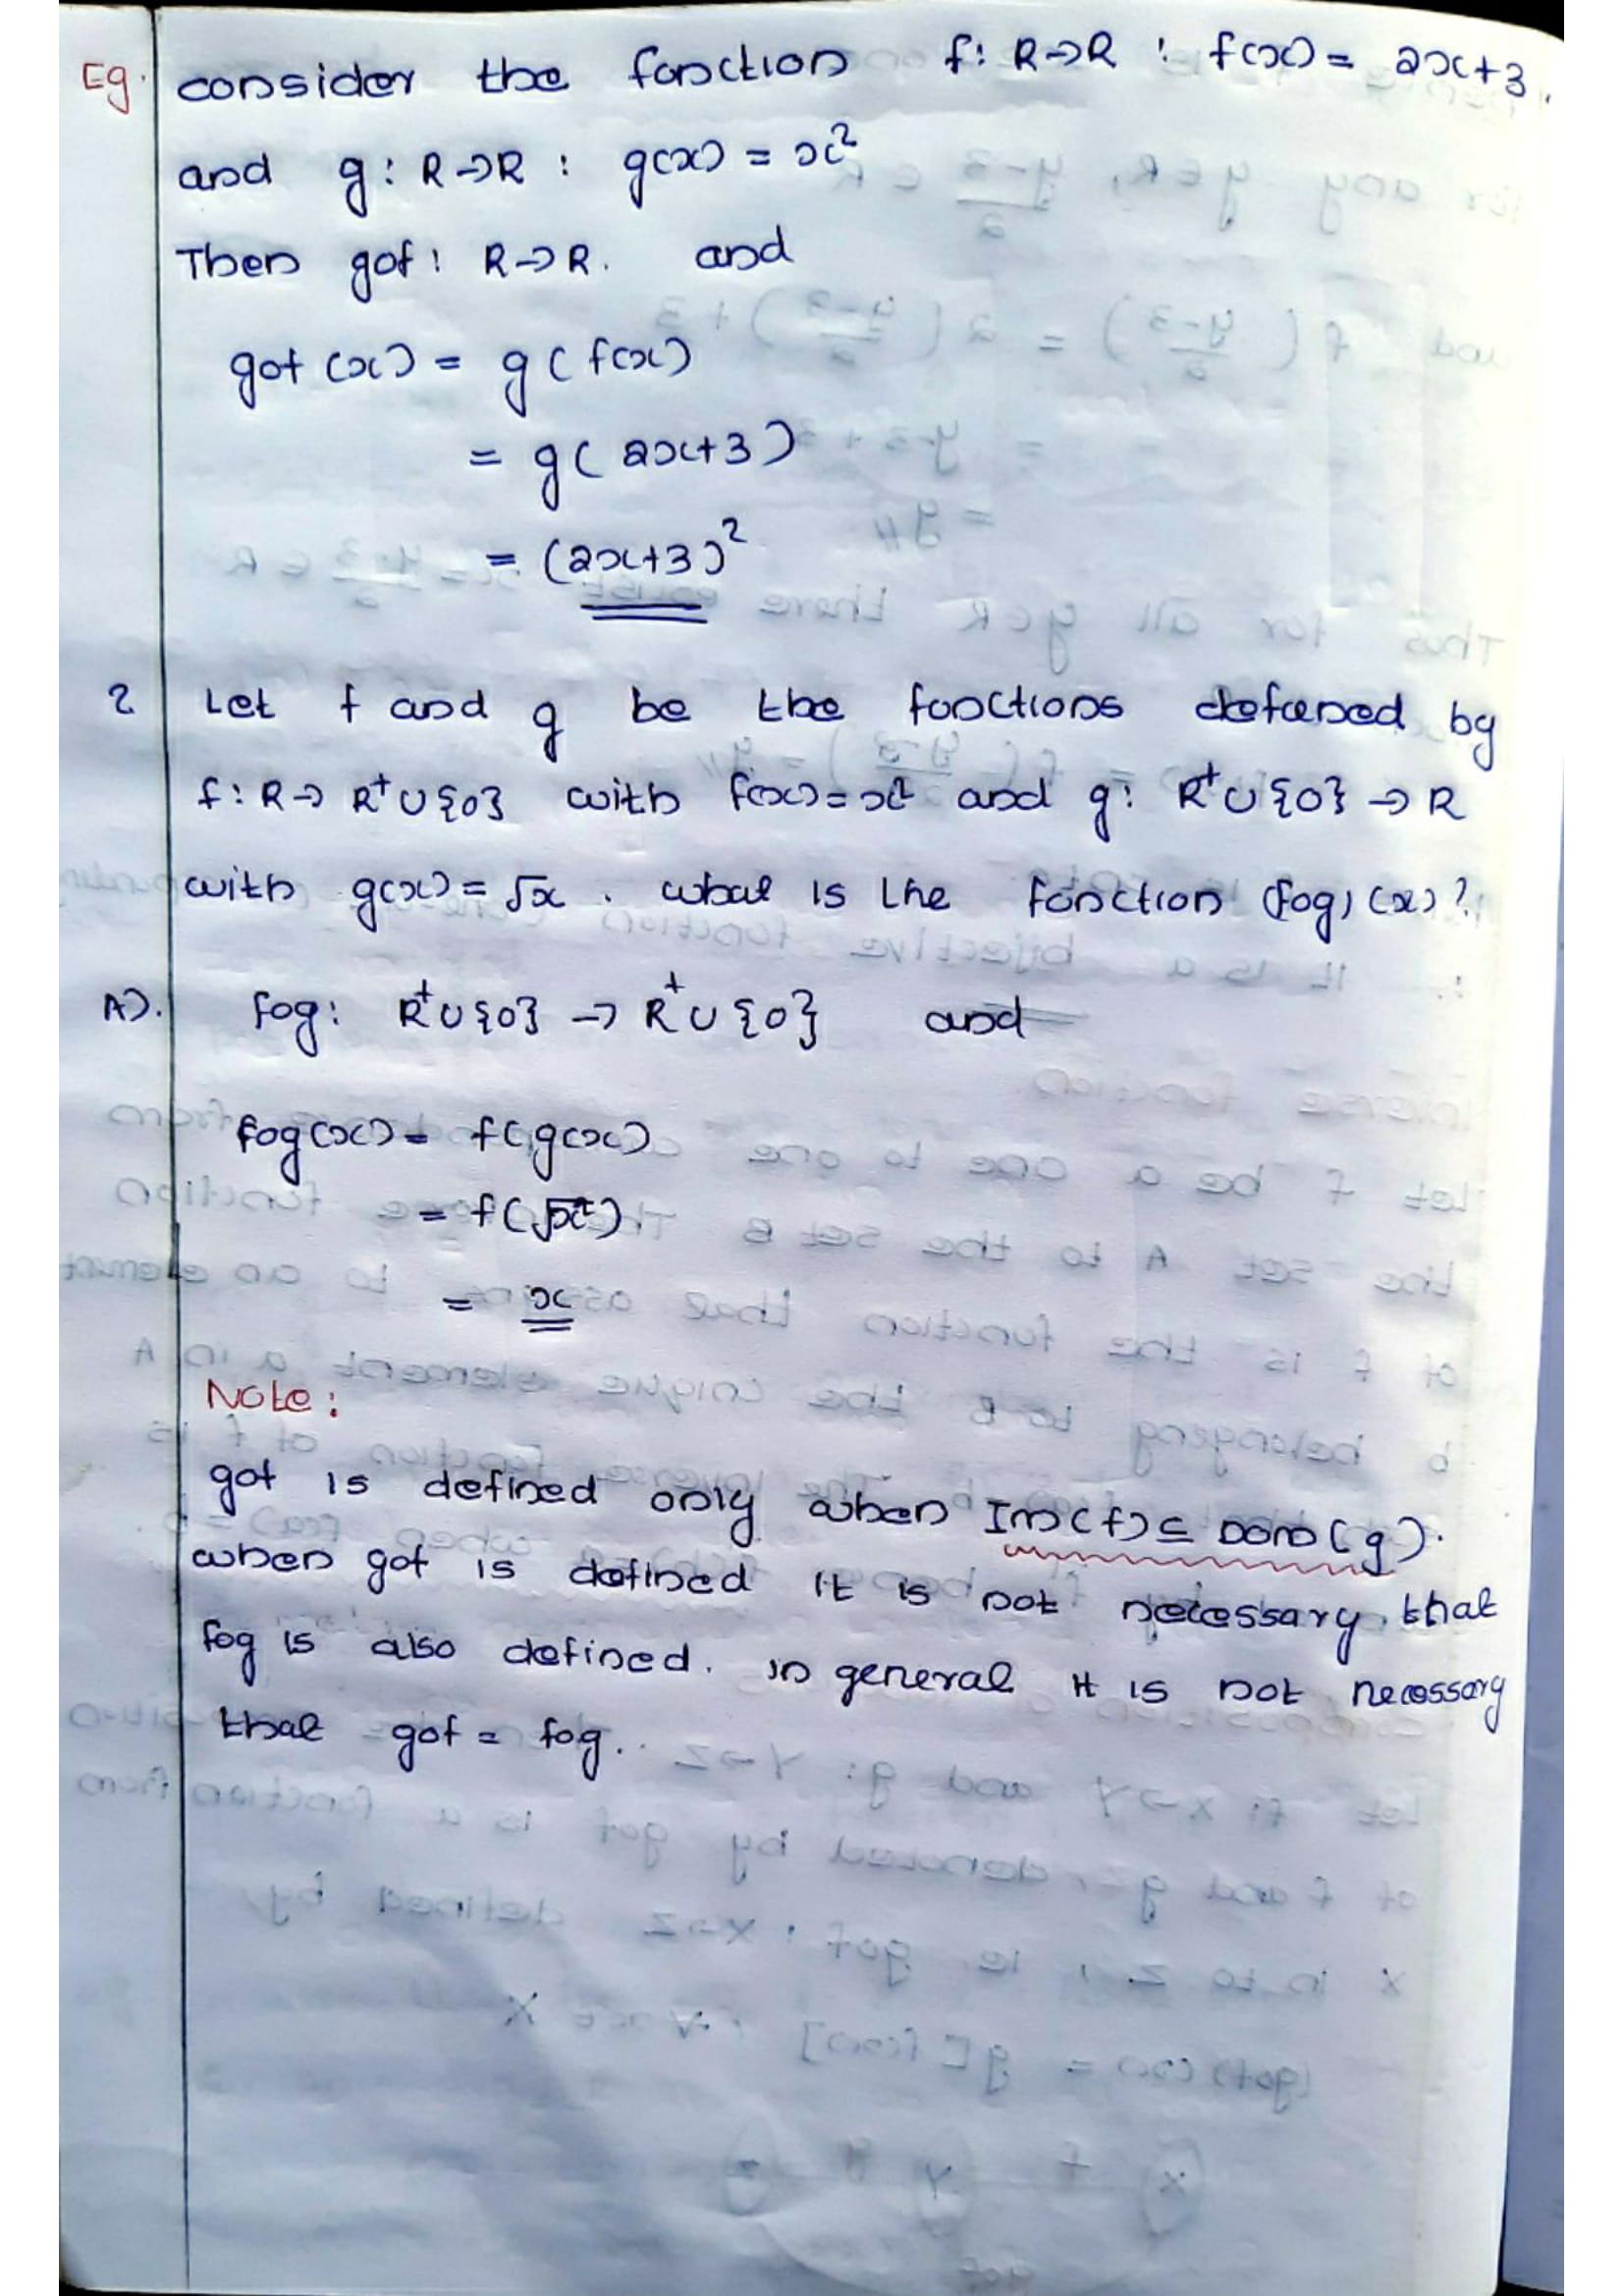 Eg. consider the function f: R→R : f(x) = 2x+3.
and g: R→R : g(x) = x²
Then gof: R→R. and
gof (x) = g(f(x)
= g(2x+3)
= (2x+3)²
2 Let f and g be the functions defined by
f: R→ R⁺∪{0} with f(x)=x² and g: R⁺∪{0} → R
with g(x)=√x . what is the function (fog)(x)?
A). fog: R⁺∪{0} → R⁺∪{0} and
fog(x) = f(g(x)
= f(√x)
= x
Note:
gof is defined only when Im(f)⊆ Dom(g).
when gof is defined it is not necessary that
fog is also defined. in general it is not necessary
that gof = fog.